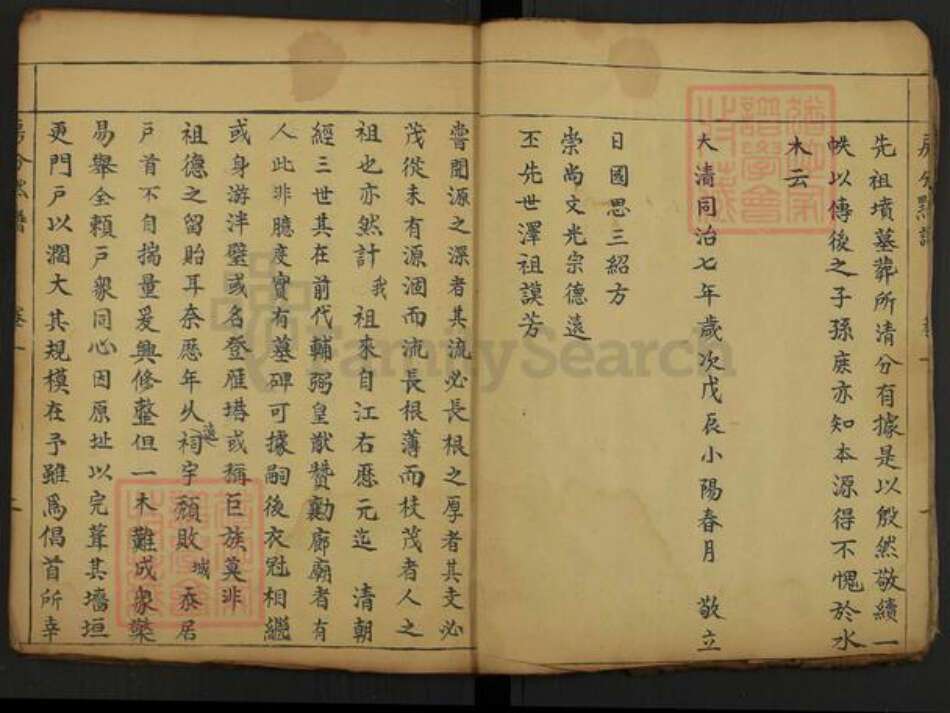 先祖墳墓葬所清分有據是以殷然敬續一
帙以傳後之子孫庶亦知本源得不愧於水
木云
大清同治七年歲次戊辰小陽春月 敬立
日國思三紹方
崇尚文光宗德遠
丕先世澤祖謨芳
嘗聞源之深者其流必長根之厚者其支必
茂從未有源涸而流長根薄而枝茂者人之
祖也亦然計我祖來自江右歷元迄 清朝
經三世其在前代輔弼皇猷贊勷廊廟者有
人此非臆度實有墓碑可據嗣後衣冠相繼
或身游泮璧或名登雁塔或稱巨族莫非
祖德之留貽耳奈歷年久遠祠宇頹敗城忝居
戶首不自揣量爰興修整但一木難成眾檠
易舉全賴戶眾同心因原址以完葺其墻垣
更門戶以濶大其規模在予雖為倡首所幸
FamilySearch